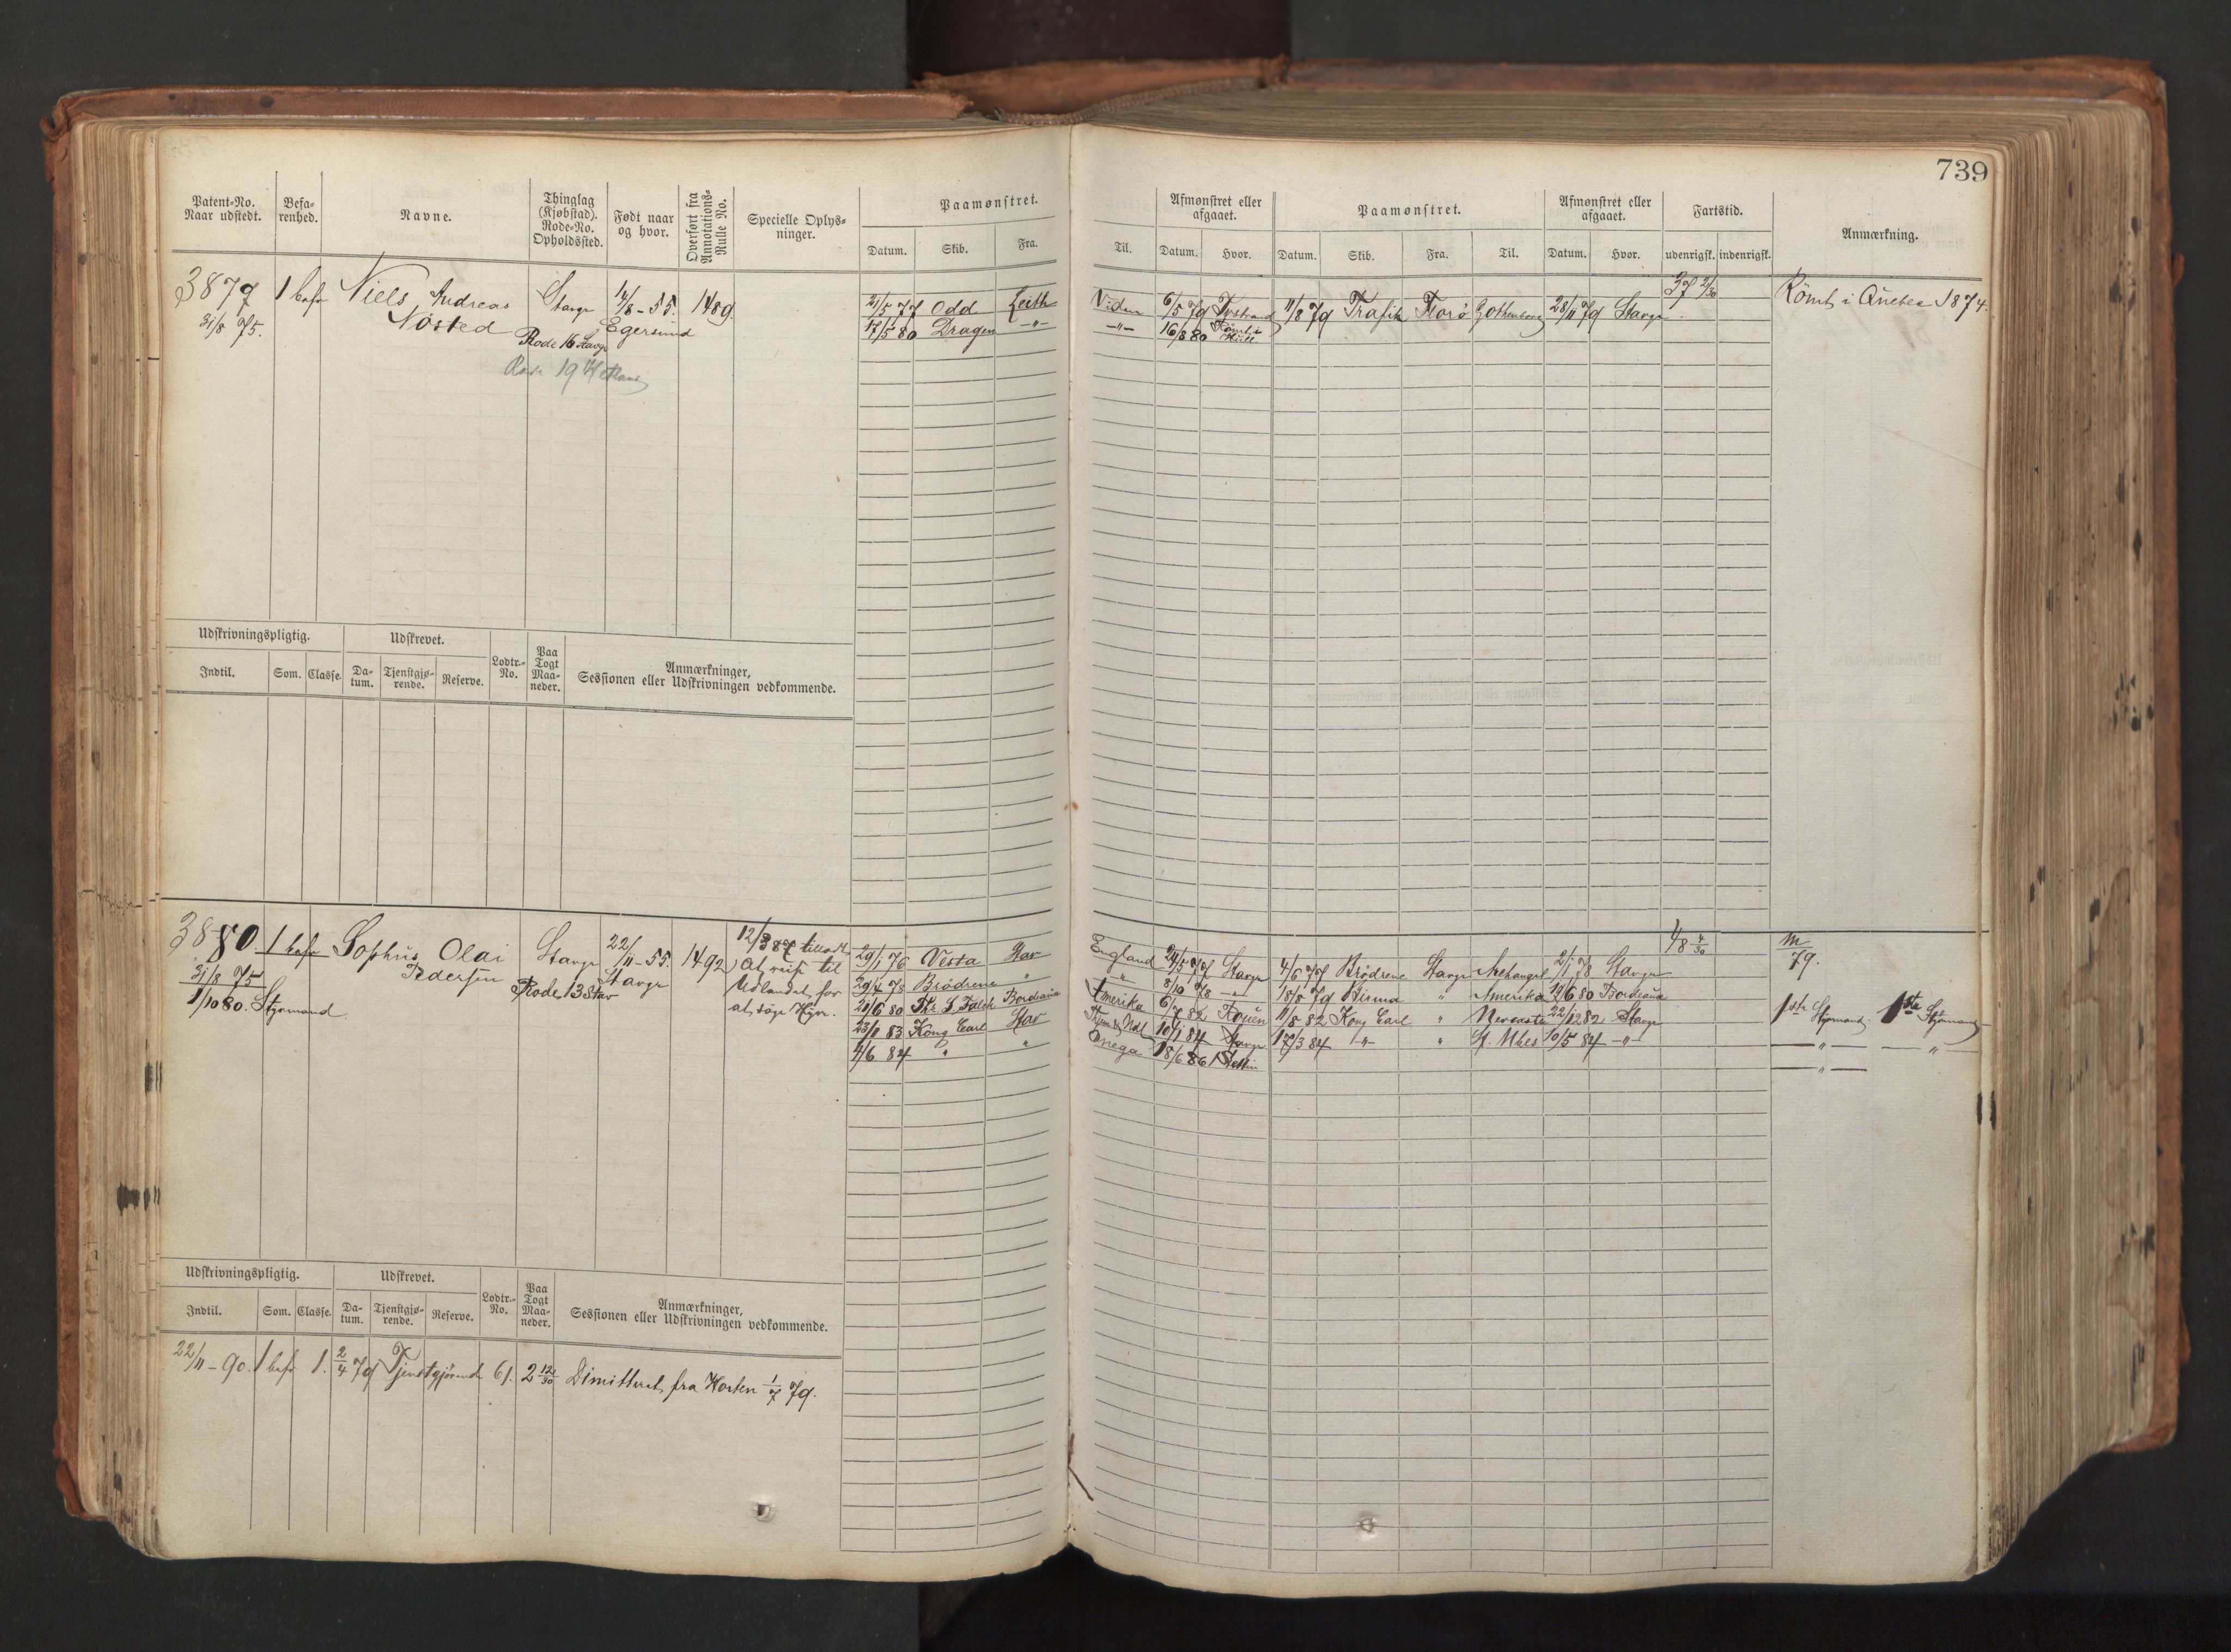 739
Patent-No. Naar udstedt.
Befa-renhed.
Navne.
Thinglag (Kjøbstad). Rode-No. Opholdssted.
Født naar og hvor.
Overført fra Annotations-Rulle No.
Specielle Oplys-ninger.
Paamønstret.
Datum. Skib. Fra. Til.
Afmønstret eller afgaaet.
Datum. Hvor.
Paamønstret.
Datum. Skib. Fra. Til.
Afmønstret eller afgaaet.
Datum. Hvor.
Fartstid.
udenrigsk. indenrigsk.
Anmærkning.
3879 1 bef Niels Andreas Stavgr 14/8-55. 1489
31/8 75. Nøsted Rode 16 Stavgr Egersund
Rode 19 Hetland
21/5 77 Odd Leith
17/5 80 Dragen -"-
6/5 79 11/8 79 Trafik Florø Gothenborg 28/11 79 Stavgr
-"- 16/8 80 Rømt i Hull
37 2/30
Römt i Quebec 1874.
Udskrivningspligtig. Udskrevet.
Indtil. Som. Classe. Da-tum. Tjenstgjø-rende. Reserve. Lodtr.-No. Paa Togt Maa-neder.
Anmærkninger, Sessionen eller Udskrivningen vedkommende.
3880. 1 bef Sophus Olai Stavgr 22/11-55. 1492
31/8 75 Pedersen Rode 13 Stav Stavgr
1/10 80. Styrmand
12/3 87 tilladt
at reise til
Udlandet for
at søge Hyre.
29/1 76 Vesta Stav
29/4 78 Brødrene "
21/6 80 Falck Bordeaux
23/1 83 Kong Carl Stav
4/6 84 " "
England 24/5 77 Stavgr 4/6 77 Brødrene Stavgr Archangel 2/1 78 Stavgr
" 8/10 78 -"- 18/8 79 " Amerika 19/6 80 Bordeaux
Amerika 6/7 82 Rouen 11/8 82 Kong Carl " Newcastle 22/12 82 Stavgr
10/1 84 Stavgr 17/3 84 -"- " St. Ubes 10/5 84 -"-
Onega 18/6 86 Stettin
48 4/30
m 79.
1ste Styrmand. 1ste Styrmand
-"- -"-
-"-
Udskrivningspligtig. Udskrevet.
Indtil. Som. Classe. Da-tum. Tjenstgjø-rende. Reserve. Lodtr.-No. Paa Togt Maa-neder.
Anmærkninger, Sessionen eller Udskrivningen vedkommende.
22/11-90. 1 bef 1. 2/4 79 Tjenstgjørende 61. 2 12/30 Dimitteret fra Horten 1/7 79.